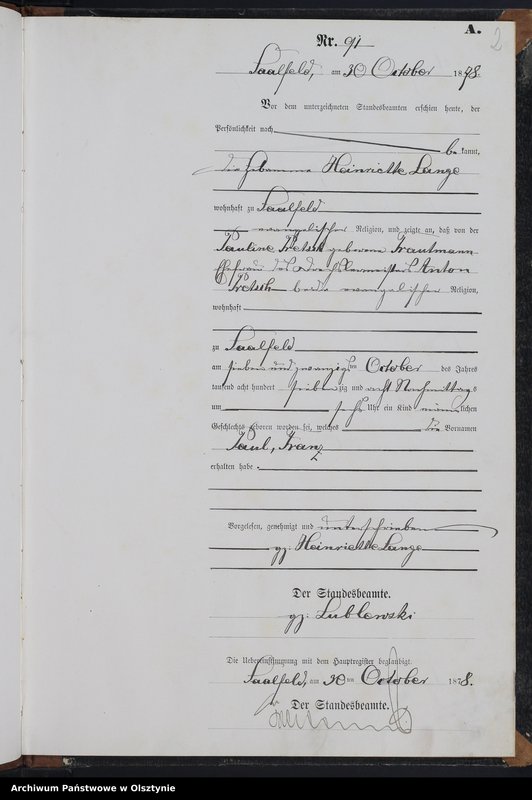 A.
2
Nr. 91
Saalfeld, am 30 October 1878.
Vor dem unterzeichneten Standesbeamten erschien heute, der
Persönlichkeit nach
bekannt,
die Hebamme Henriette Lange
wohnhaft zu Saalfeld
evangelischer Religion, und zeigte an, daß von der
Pauline geborene Trautmann
Ehefrau des Drechslermeisters Anton
beide evangelischer Religion,
wohnhaft
zu Saalfeld
am sieben und zwanzigsten October des Jahres
tausend acht hundert siebenzig und acht Nachmittags
um sechs Uhr ein Kind männlichen
Geschlechts geboren worden sei, welches die Vornamen
Paul, Franz
erhalten habe.
Vorgelesen, genehmigt und unterschrieben
gz: Henriette Lange
Der Standesbeamte.
gz: Lublewski
Die Uebereinstimmung mit dem Hauptregister beglaubigt.
Saalfeld, am 30ten October 1878.
Der Standesbeamte.
Archiwum Państwowe w Olsztynie